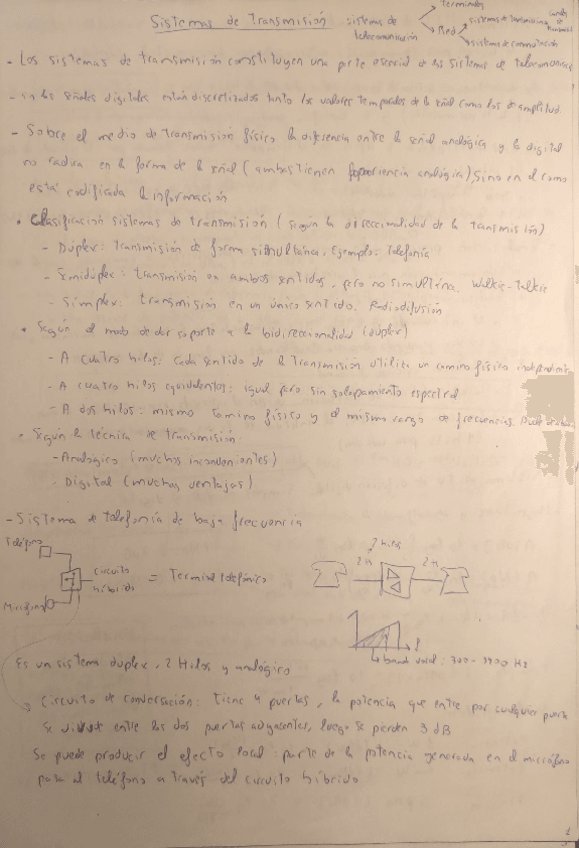 Sistemas de Transmisión
sistemas de telecomunicación
Terminales
Red
sistemas de transmisión
sistemas de conmutación
- Los sistemas de transmisión constituyen una parte esencial de los sistemas de telecomunicación
- en las señales digitales están discretizados tanto los valores temporales de la señal como los de amplitud.
- Sobre el medio de transmisión físico la diferencia entre la señal analógica y la digital
no radica en la forma de la señal (ambas tienen apariencia analógica), sino en el como
está codificada la información
• Clasificación sistemas de transmisión (según la direccionalidad de la transmisión)
- Dúplex: transmisión de forma simultánea. Ejemplo: Telefonía
- Semidúplex: transmisión en ambos sentidos, pero no simultánea. Walkie-Talkie
- Símplex: transmisión en un único sentido. Radiodifusión
• Según el modo de dar soporte a la bidireccionalidad (duplex)
- A cuatro hilos: cada sentido de la transmisión utiliza un camino físico independiente
- A cuatro hilos equivalentes: igual pero sin solapamiento espectral
- A dos hilos: mismo camino físico y el mismo rango de frecuencias.
• Según la técnica de transmisión:
- Analógico (muchos inconvenientes)
- Digital (muchas ventajas)
- Sistema de telefonía de baja frecuencia
Teléfono
circuito
híbrido
= Terminal telefónico
Micrófono
2 hilos
2H
2H
f
banda vocal: 300-3400 Hz
Es un sistema duplex, 2 Hilos y analógico
circuito de conversación: tiene 4 puertas, la potencia que entre por cualquier puerta
se divide entre las dos puertas adyacentes, luego se pierden 3 dB
Se puede producir el efecto local: parte de la potencia generada en el micrófono
pasa al teléfono a través del circuito híbrido
1